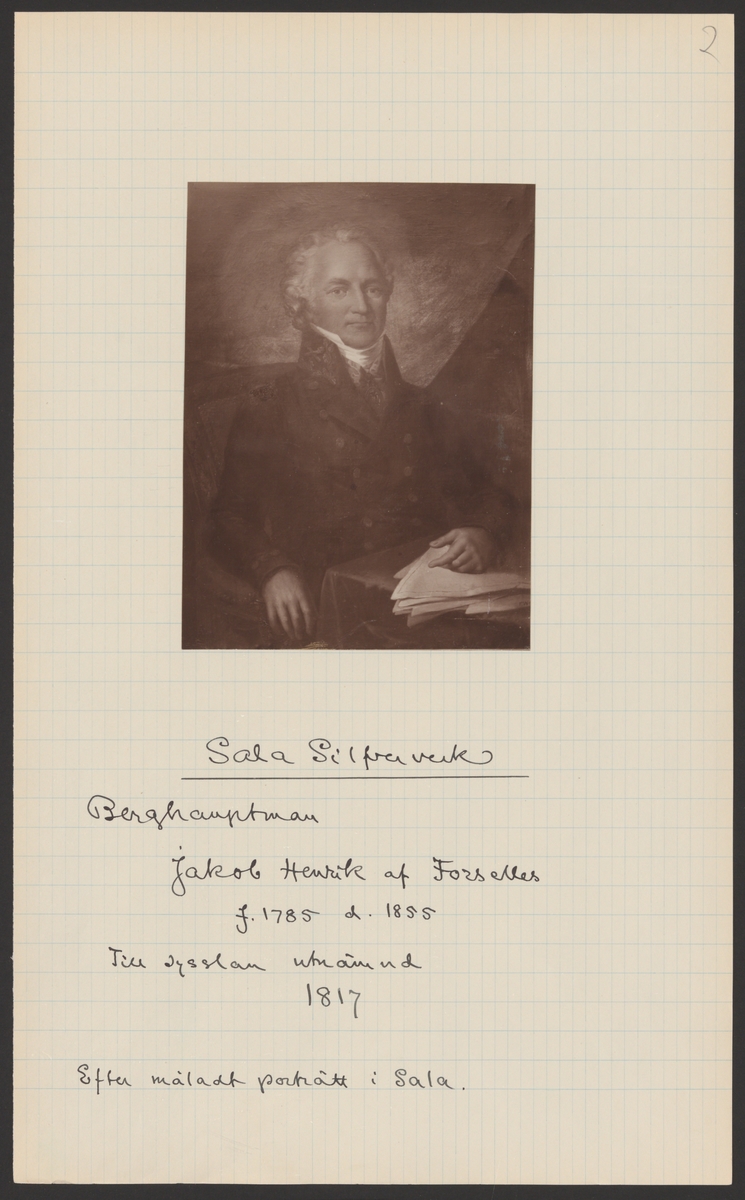 2
Sala Silfververk
Berghauptman
Jakob Henrik af Forselles
f. 1785 d. 1855
Till sysslan utnämnd
1817
Efter måladt porträtt i Sala.